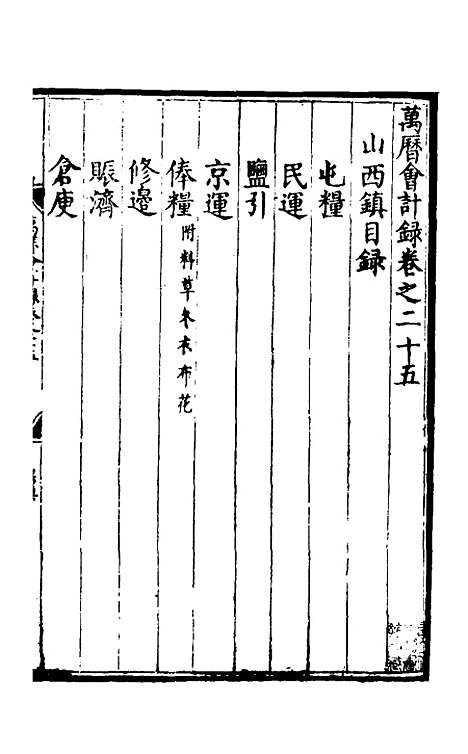 萬曆會計録卷之二十五
山西鎮目録
屯糧
民運
鹽引
京運
俸糧附料草冬衣布花
修邊
賑濟
倉庾